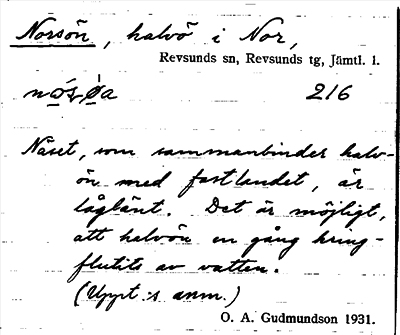 Norsön, halvö i Nor,
Revsunds sn, Revsunds tg, Jämtl. l.
216
Näset, som sammanbinder halv-
ön med fastlandet, är
låglänt. Det är möjligt,
att halvön en gång kring-
flutits av vatten.
(Uppt:s anm.)
O. A. Gudmundson 1931.